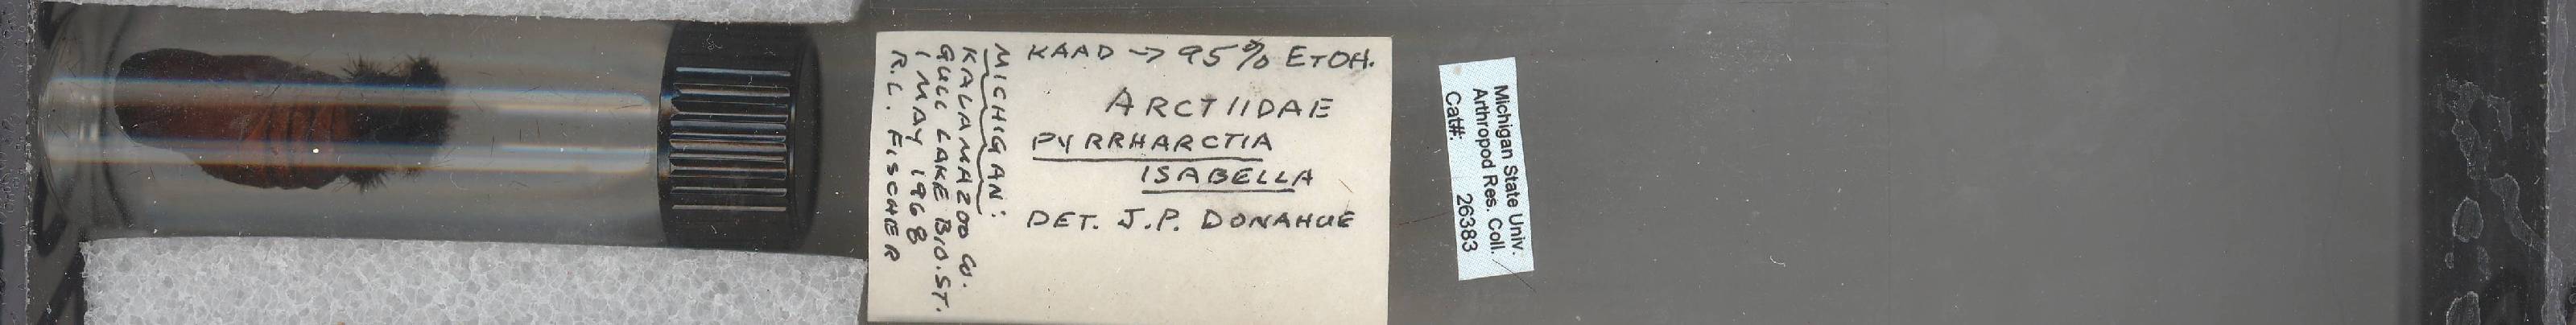 KAAD → 95% ETOH.
ARCTIIDAE
PYRRHARCTIA
ISABELLA
DET. J.P. DONAHUE
MICHIGAN:
KALAMAZOO CO.
GULL LAKE BIO. ST.
1 MAY 1968
R.L. FISCHER
Michigan State Univ.
Arthropod Res. Coll.
Cat#: 26383